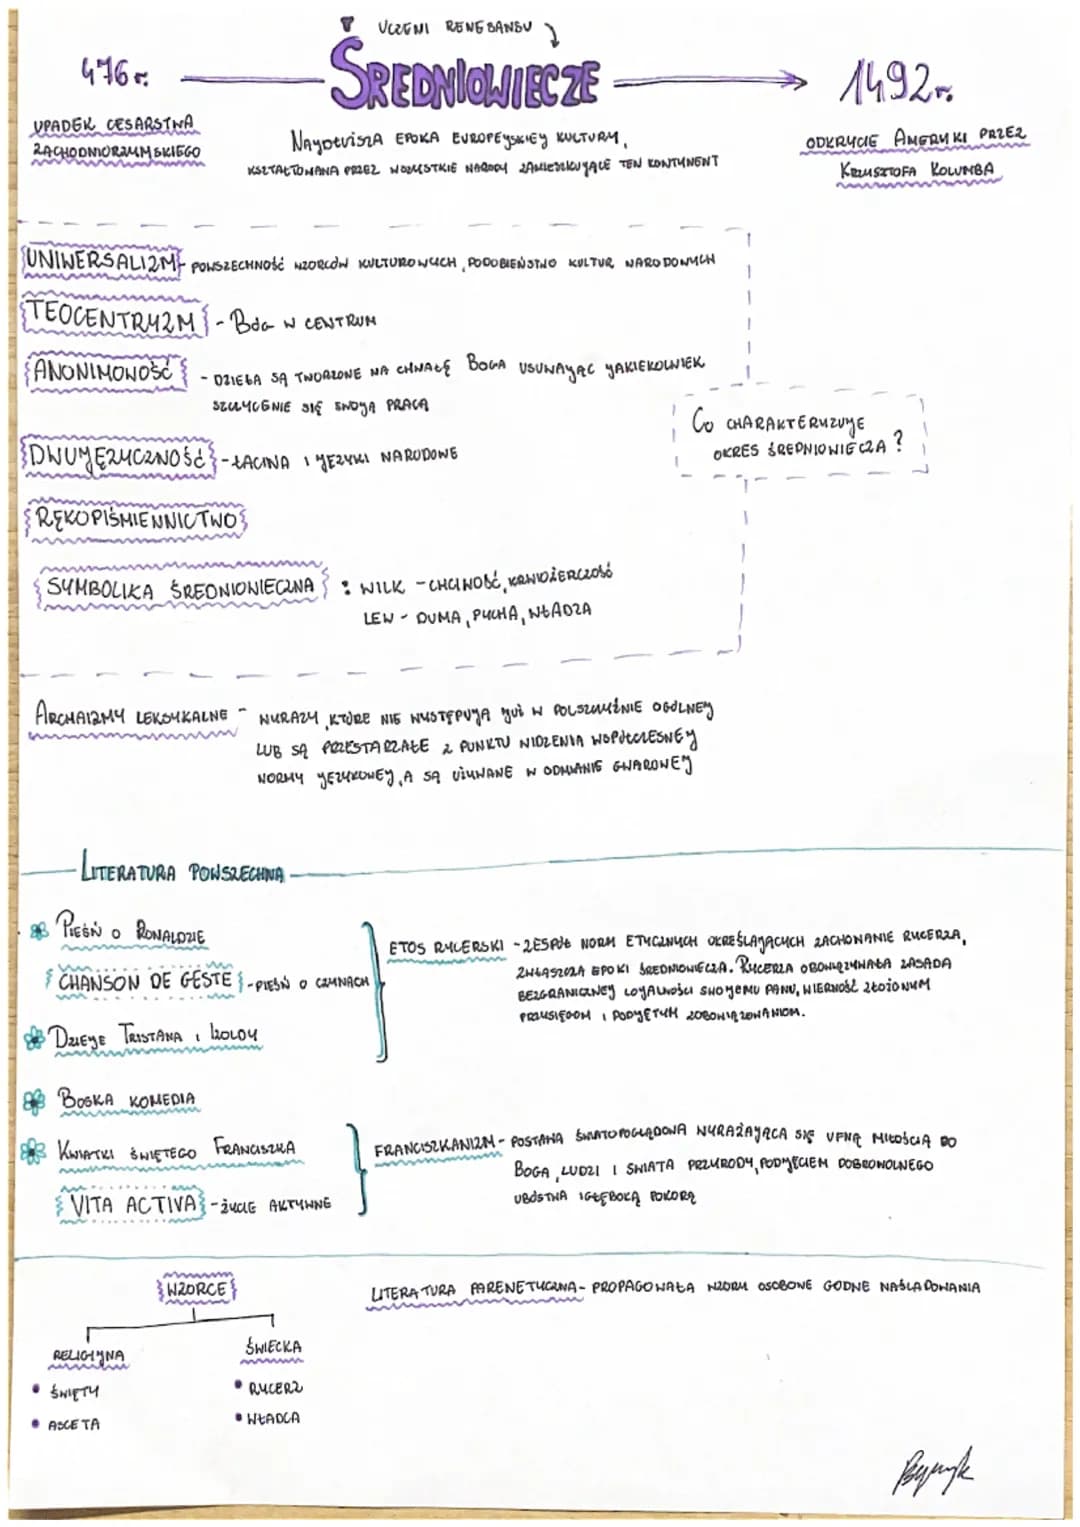 UCZENI RENESANSU
476 r.
ŚREDNIOWIECZE
1492 r.
UPADEK CESARSTWA
ZACHODNIORZYMSKIEGO
NAJDŁUŻSZA EPOKA EUROPEJSKIEJ KULTURY,
KSZTAŁTOWANA PRZEZ WSZYSTKIE NARODY ZAMIESZKUJĄCE TEN KONTYNENT
ODKRYCIE AMERYKI PRZEZ
KRZYSZTOFA KOLUMBA
UNIWERSALIZM - POWSZECHNOŚĆ WZORCÓW KULTUROWYCH, PODOBIEŃSTWO KULTUR NARODOWYCH
TEOCENTRYZM - BÓG W CENTRUM
ANONIMOWOŚĆ - DZIEŁA SĄ TWORZONE NA CHWAŁĘ BOGA USUWAJĄC JAKIEKOLWIEK
SZCZYCENIE SIĘ SWOJĄ PRACĄ
CO CHARAKTERYZUJE
OKRES ŚREDNIOWIECZA?
DWUJĘZYCZNOŚĆ - ŁACINA I JĘZYKI NARODOWE
RĘKOPIŚMIENNICTWO
SYMBOLIKA ŚREDNIOWIECZNA : WILK - CHCIWOŚĆ, KRWIOŻERCZOŚĆ
LEW - DUMA, PYCHA, WŁADZA
ARCHAIZMY LEKSYKALNE - WYRAZY, KTÓRE NIE WYSTĘPUJĄ JUŻ W POLSZCZYŹNIE OGÓLNEJ
LUB SĄ PRZESTARZAŁE Z PUNKTU WIDZENIA WSPÓŁCZESNEJ
NORMY JĘZYKOWEJ, A SĄ UŻYWANE W ODMIANIE GWAROWEJ
LITERATURA POWSZECHNA
PIEŚŃ O RONALDZIE
CHANSON DE GESTE - PIEŚŃ O CZYNACH
DZIEJE TRISTANA I IZOLDY
ETOS RYCERSKI - ZESPÓŁ NORM ETYCZNYCH OKREŚLAJĄCYCH ZACHOWANIE RYCERZA,
ZWŁASZCZA EPOKI ŚREDNIOWIECZA. RYCERZA OBOWIĄZYWAŁA ZASADA
BEZGRANICZNEJ LOJALNOŚCI SWOJEMU PANU, WIERNOŚĆ ZŁOŻONYM
PRZYSIĘGOM I PODJĘTYM ZOBOWIĄZOWANIOM.
BOSKA KOMEDIA
KWIATKI ŚWIĘTEGO FRANCISZKA
VITA ACTIVA - ŻYCIE AKTYWNE
FRANCISZKANIZM - POSTAWA ŚWIATOPOGLĄDOWA WYRAŻAJĄCA SIĘ UFNĄ MIŁOŚCIĄ DO
BOGA, LUDZI I ŚWIATA PRZYRODY, PODJĘCIEM DOBROWOLNEGO
UBÓSTWA I GŁĘBOKĄ POKORĄ
WZORCE
LITERATURA PARENETYCZNA - PROPAGOWAŁA WZORY OSOBOWE GODNE NAŚLADOWANIA
RELIGIJNA
ŚWIĘTY
ASCETA
ŚWIECKA
RYCERZ
WŁADCA